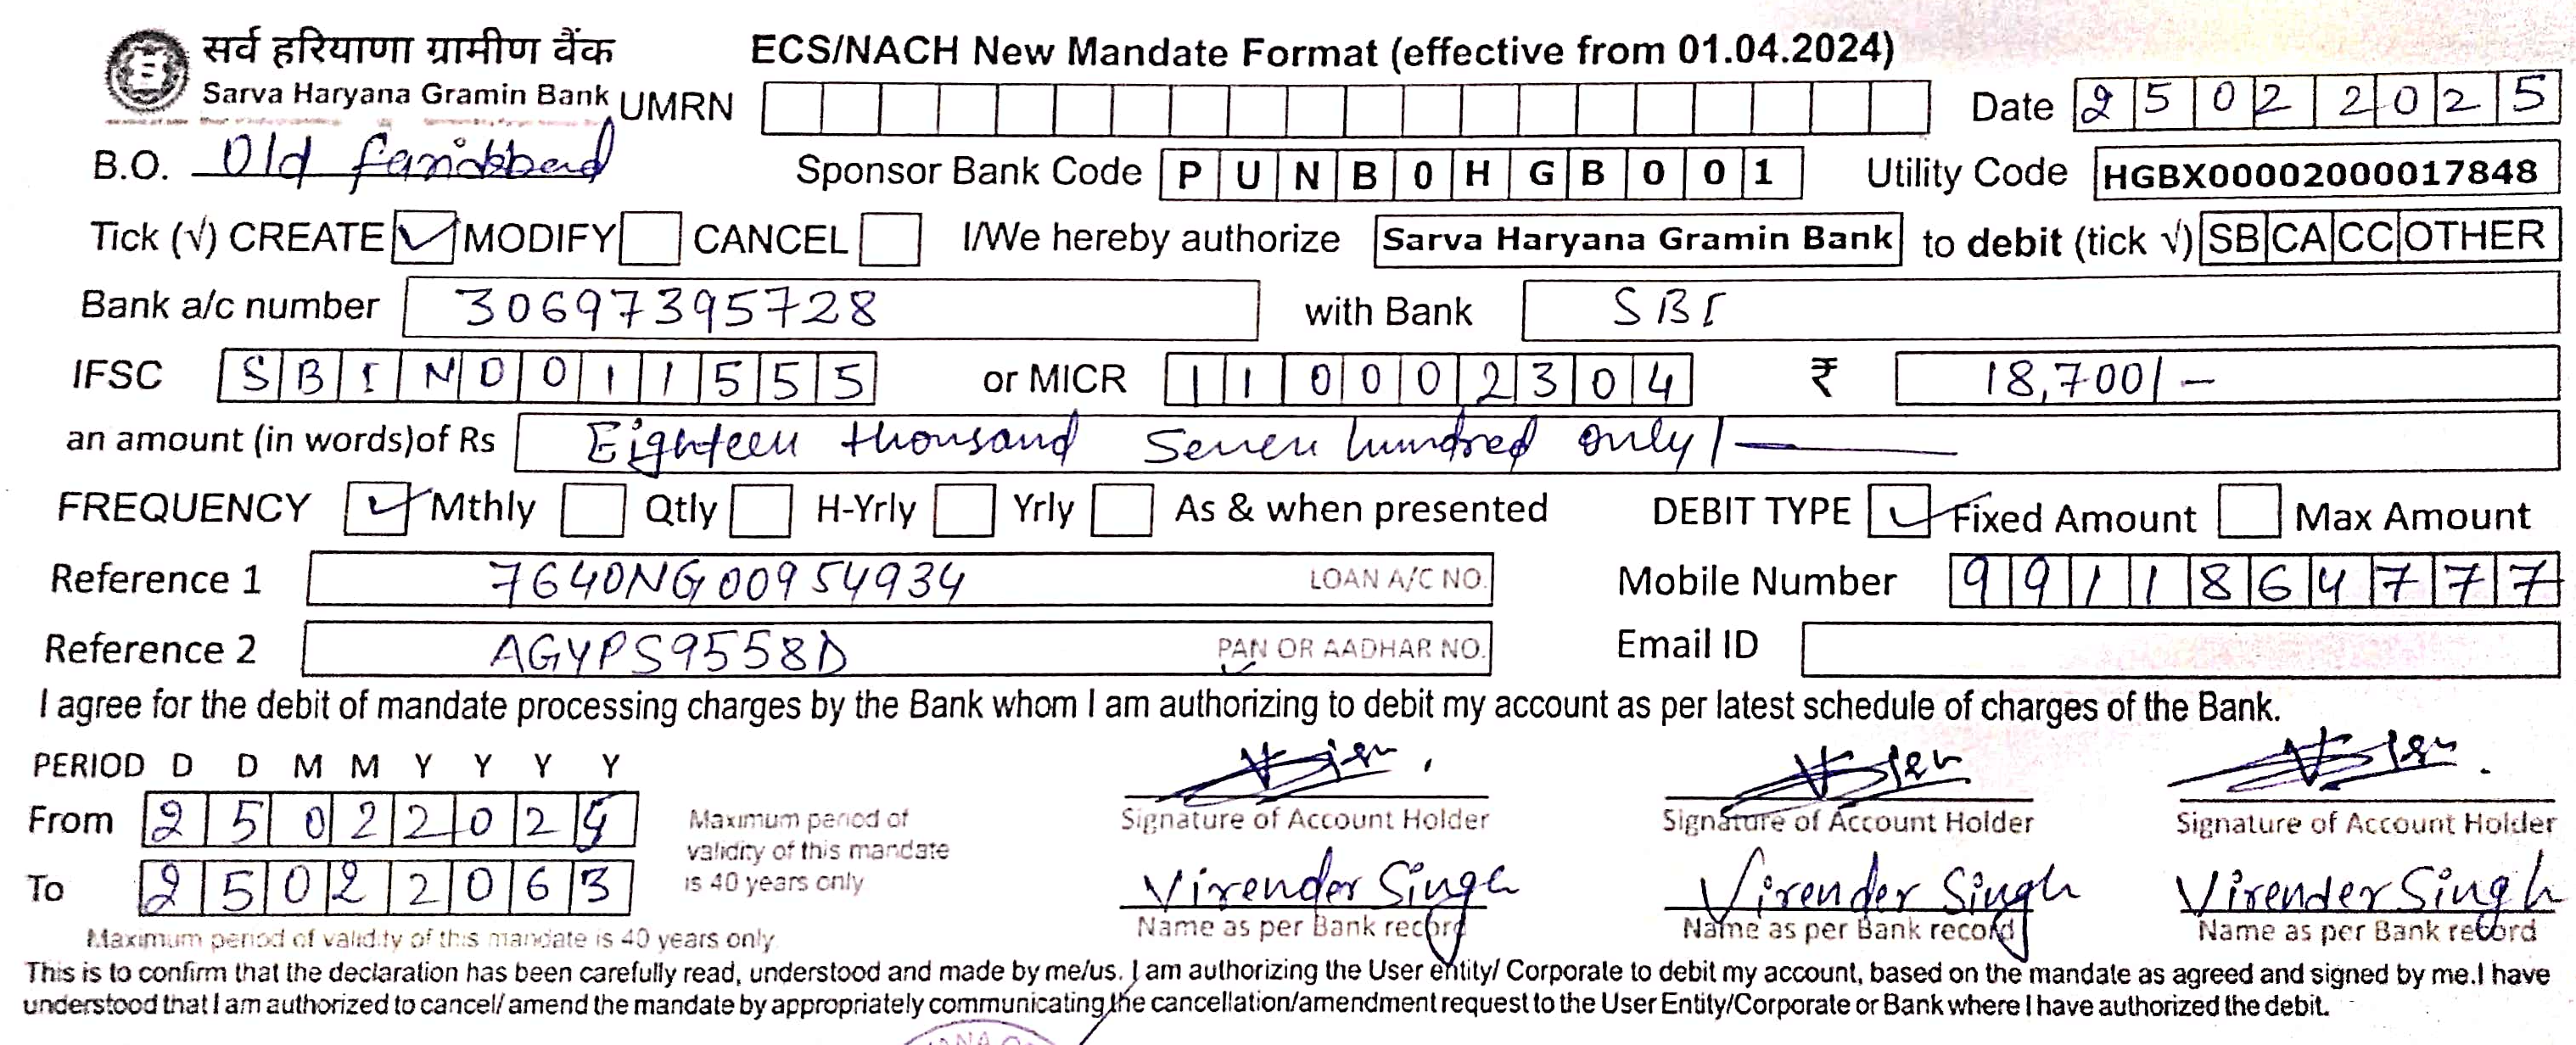 सर्व हरियाणा ग्रामीण बैंक
Sarva Haryana Gramin Bank
ECS/NACH New Mandate Format (effective from 01.04.2024)
UMRN Date 25022025
B.O. Old Faridabad Sponsor Bank Code PUNB0HGB001 Utility Code HGBX00002000017848
Tick (√) CREATE ✓ MODIFY CANCEL I/We hereby authorize Sarva Haryana Gramin Bank to debit (tick √) SB CA CC OTHER
Bank a/c number 30697395728 with Bank SBI
IFSC SBIN0011555 or MICR 110002304 ₹ 18,700/-
an amount (in words)of Rs Eighteen thousand Seven hundred only/—
FREQUENCY ✓ Mthly Qtly H-Yrly Yrly As & when presented DEBIT TYPE ✓ Fixed Amount Max Amount
Reference 1 7640NG00954934 LOAN A/C NO. Mobile Number 9911864777
Reference 2 AGYPS9558D PAN OR AADHAR NO. Email ID
I agree for the debit of mandate processing charges by the Bank whom I am authorizing to debit my account as per latest schedule of charges of the Bank.
PERIOD D D M M Y Y Y Y
From 2502202
To 25022063
Maximum period of
validity of this mandate
is 40 years only
Maximum period of validity of this mandate is 40 years only
Signature of Account Holder Signature of Account Holder Signature of Account Holder
Virender Singh Virender Singh Virender Singh
Name as per Bank record Name as per Bank record Name as per Bank record
This is to confirm that the declaration has been carefully read, understood and made by me/us. I am authorizing the User entity/ Corporate to debit my account, based on the mandate as agreed and signed by me.I have
understood that I am authorized to cancel/ amend the mandate by appropriately communicating the cancellation/amendment request to the User Entity/Corporate or Bank where I have authorized the debit.